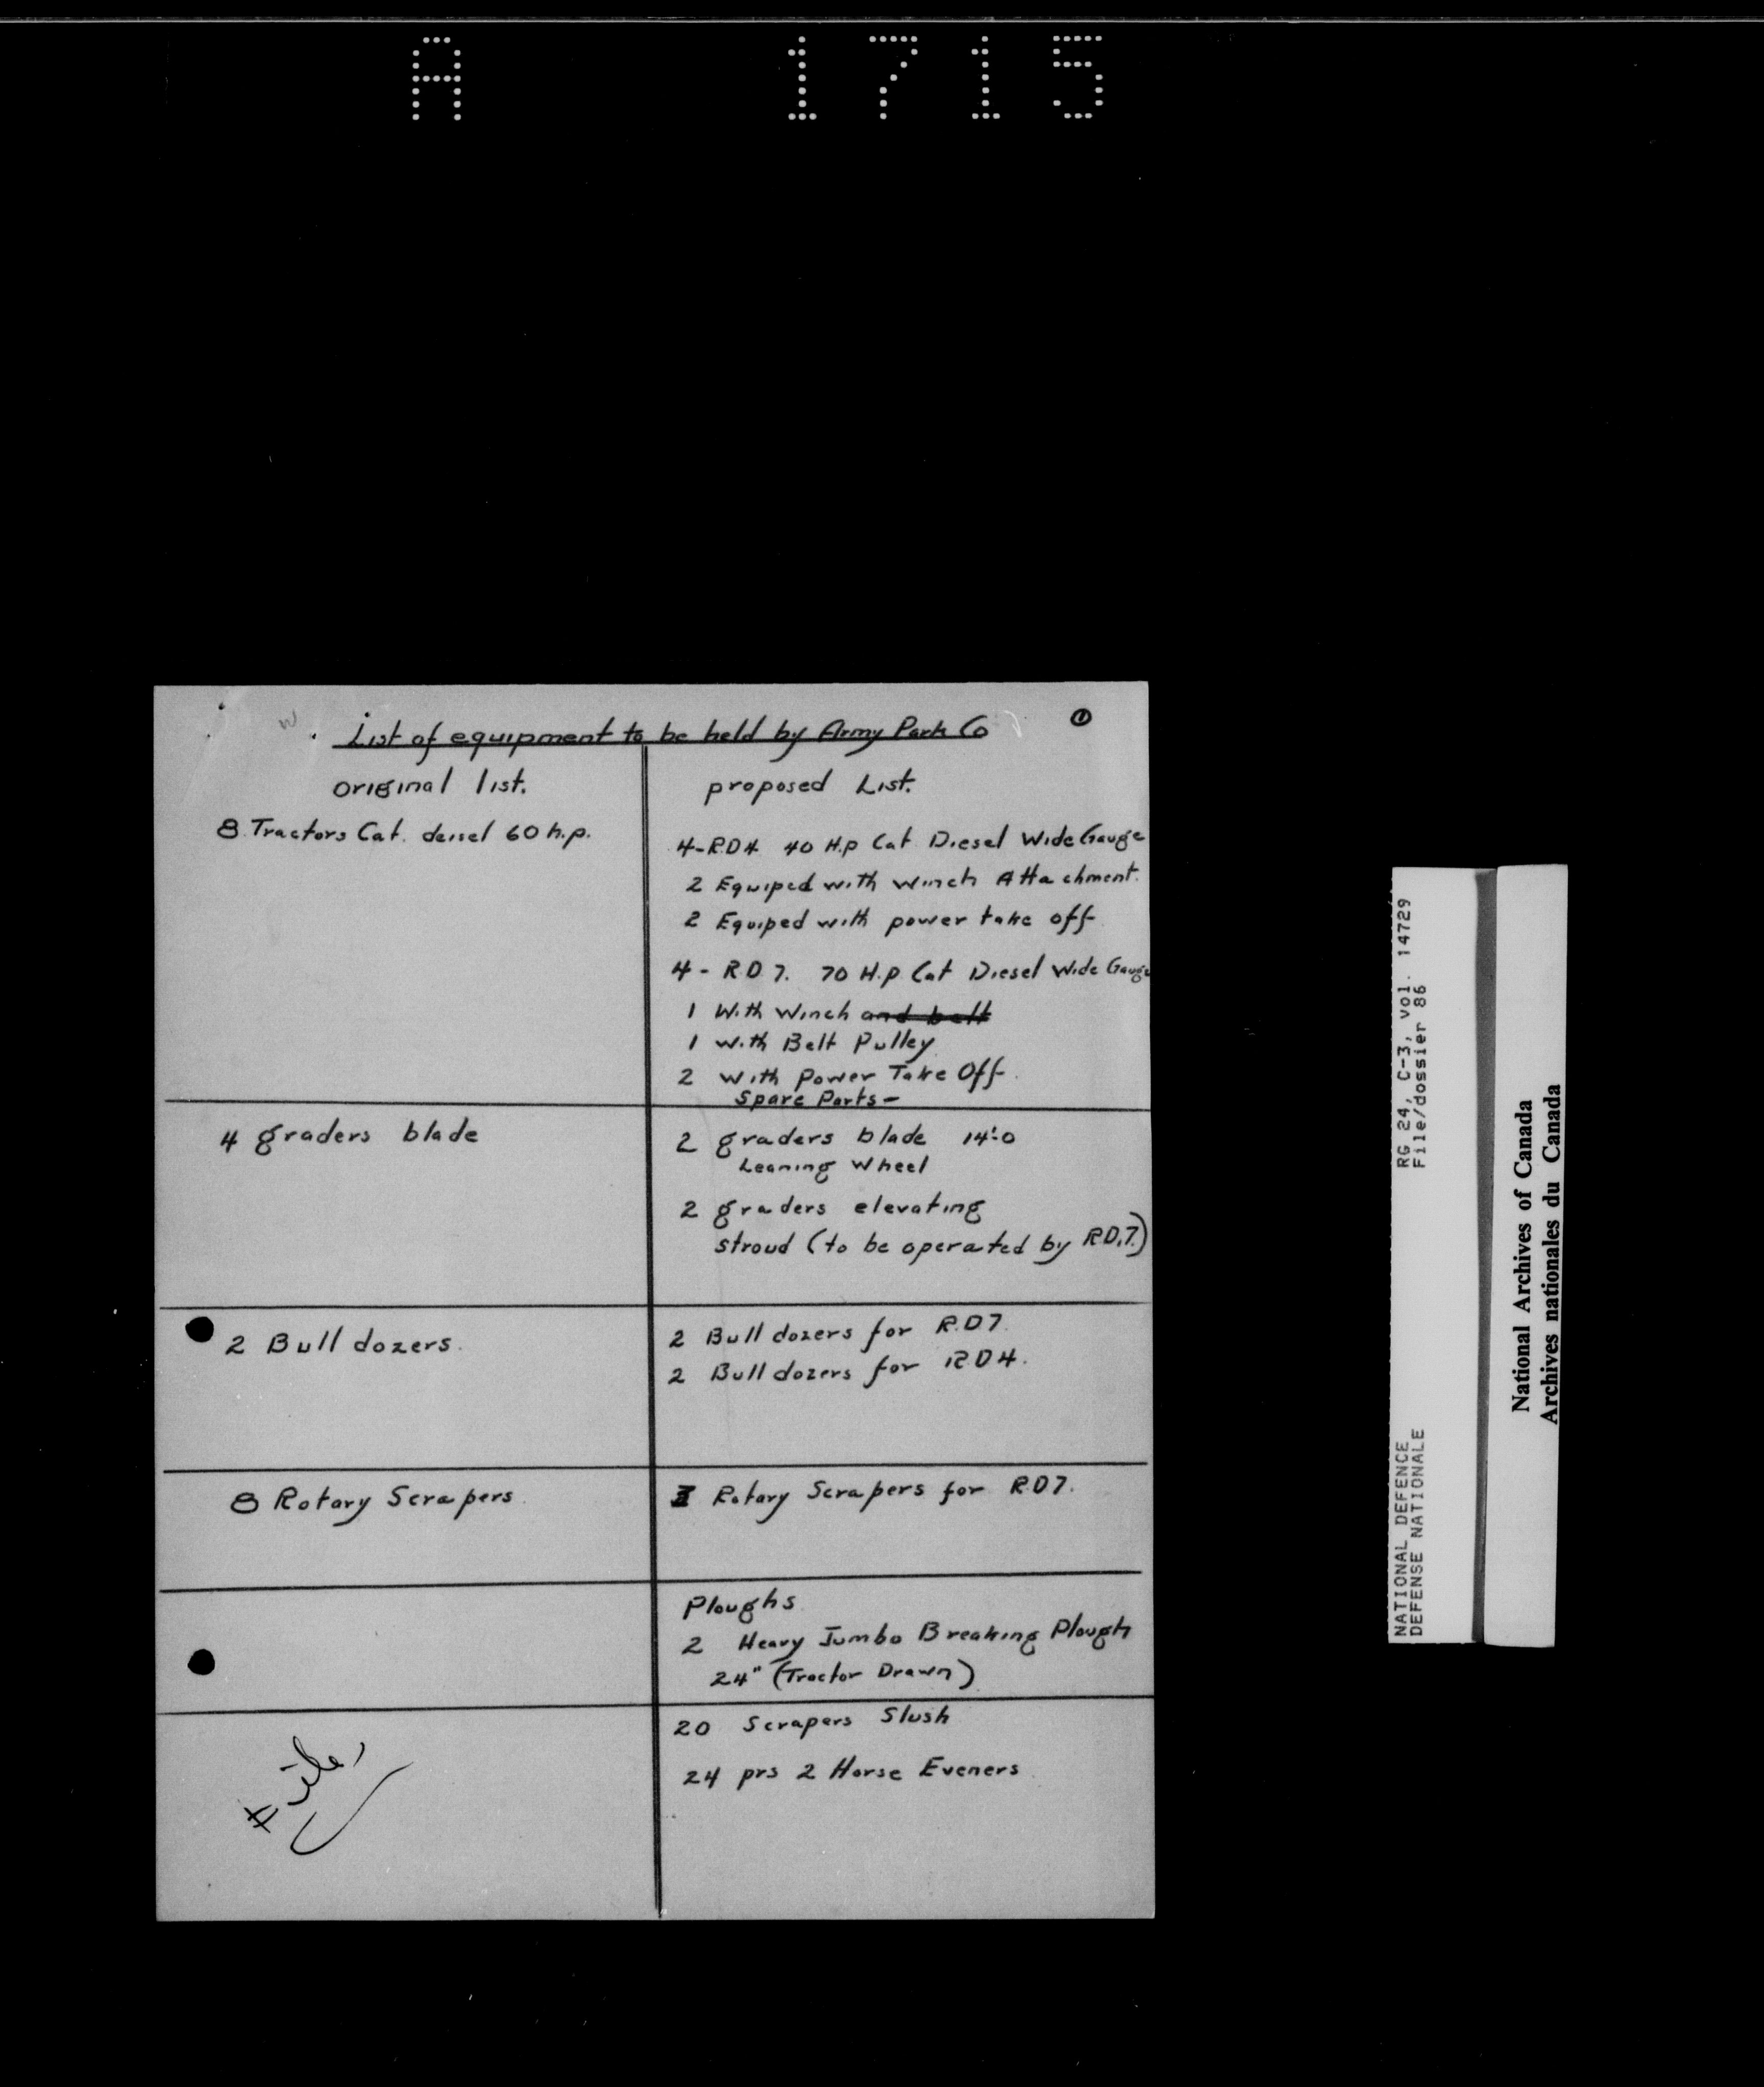 A 1715
List of equipment to be held by Army Park Co
1
original list.
8 Tractors Cat. deisel 60 h.p.
proposed List.
4-R.D4 40 H.p Cat Diesel Wide Gauge
2 Equiped with winch Attachment.
2 Equiped with power take off
4 - R.D 7. 70 H.p. Cat Diesel Wide Gauge
1 With Winch and belt
1 with Belt Pulley
2 with Power Take Off.
Spare Parts-
4 graders blade
2 graders blade 14'-0
Leaning Wheel
2 graders elevating
stroud (to be operated by R.D.7.)
2 Bull dozers.
2 Bull dozers for R.D7.
2 Bull dozers for R D 4.
8 Rotary Scrapers
Rotary Scrapers for R.D7.
Ploughs
2 Heavy Jumbo Breaking Plough
24" (Tractor Drawn)
20 Scrapers Slush
24 prs 2 Horse Eveners
File
RG 24, C-3, vol. 14729
File/dossier 86
NATIONAL DEFENCE
DEFENSE NATIONALE
National Archives of Canada
Archives nationales du Canada